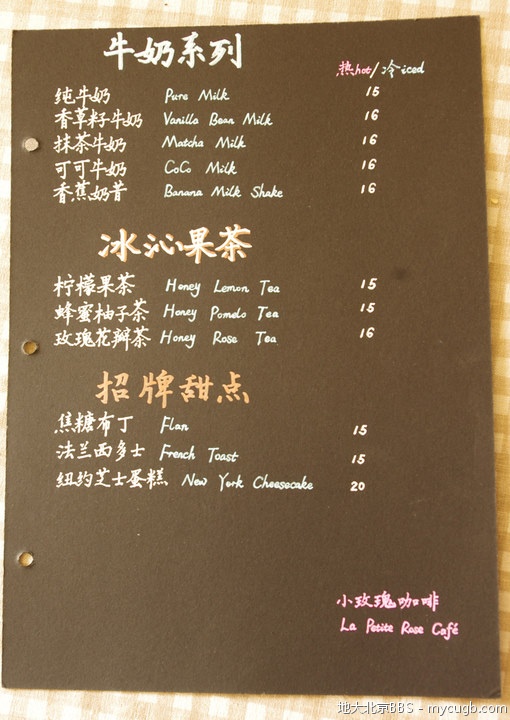 牛奶系列
热hot/冷iced
纯牛奶 Pure Milk 15
香草籽牛奶 Vanilla Bean Milk 16
抹茶牛奶 Matcha Milk 16
可可牛奶 CoCo Milk 16
香蕉奶昔 Banana Milk Shake 16
冰沁果茶
柠檬果茶 Honey Lemon Tea 15
蜂蜜柚子茶 Honey Pomelo Tea 15
玫瑰花瓣茶 Honey Rose Tea 16
招牌甜点
焦糖布丁 Flan 15
法兰西多士 French Toast 15
纽约芝士蛋糕 New York Cheesecake 20
小玫瑰咖啡
La Petite Rose Café
地大北京BBS - mycugb.com